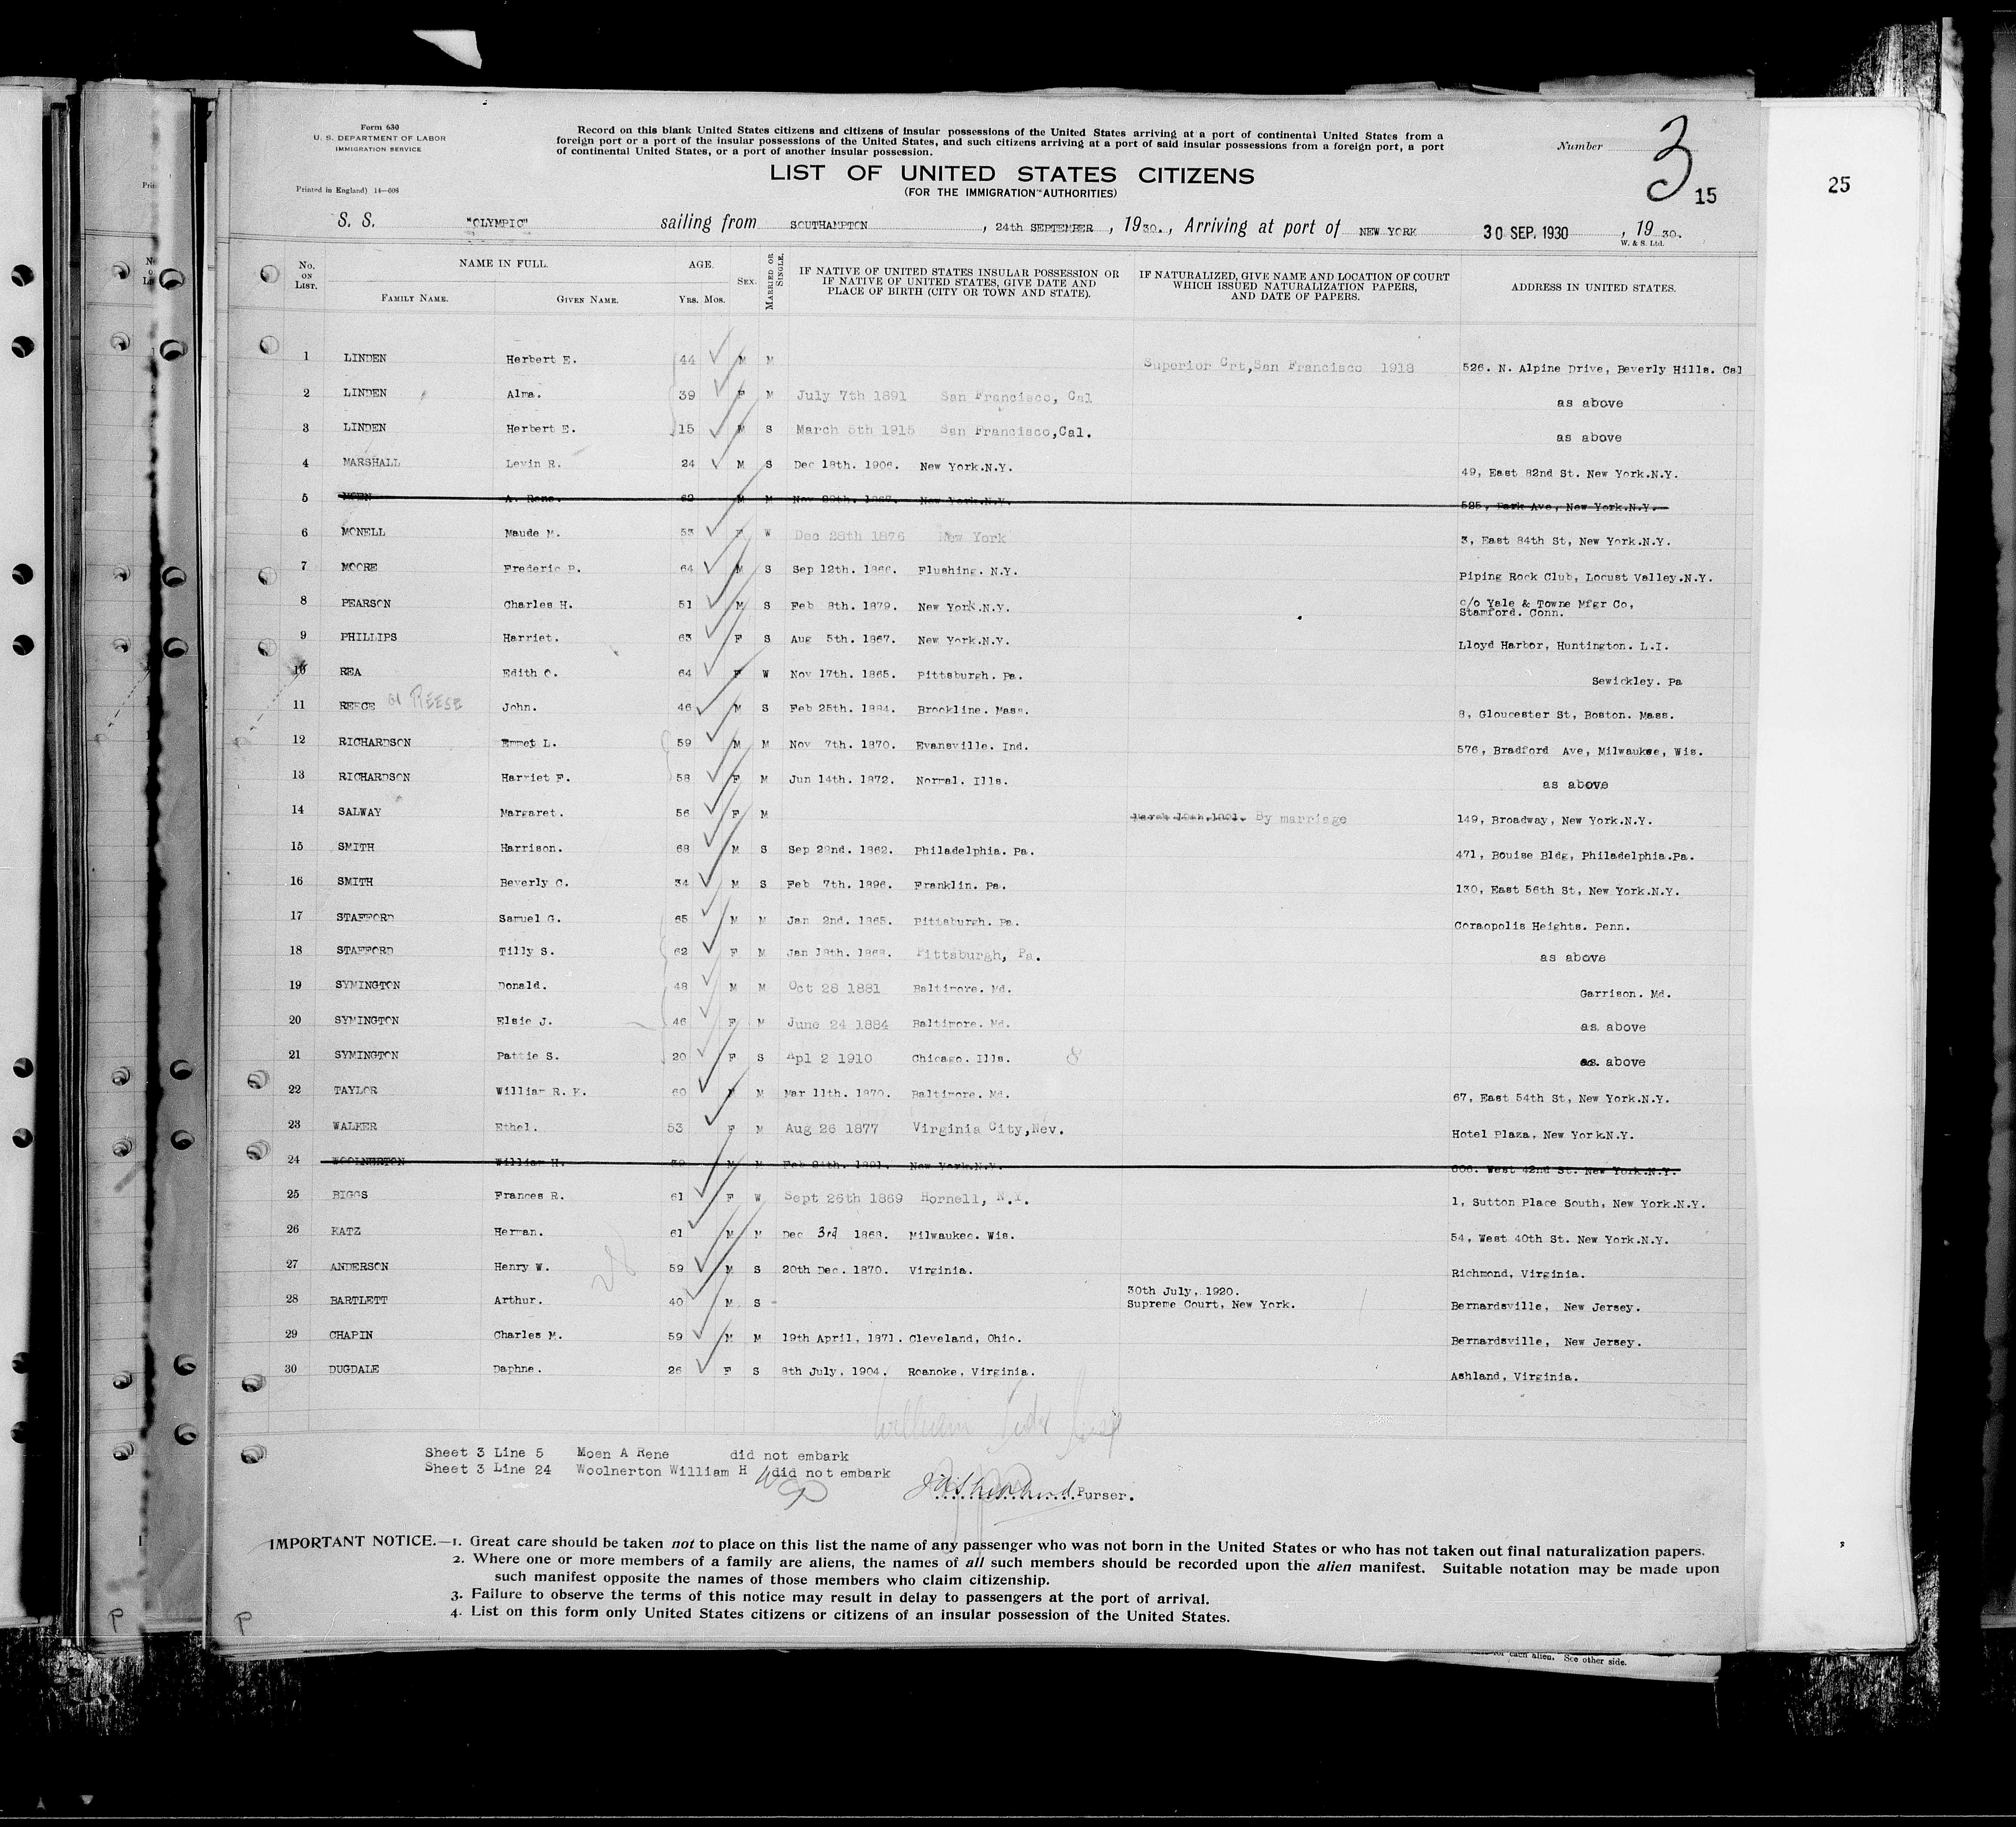 25
Form 630
U. S. DEPARTMENT OF LABOR
IMMIGRATION SERVICE
Printed in England) 14—606
Record on this blank United States citizens and citizens of insular possessions of the United States arriving at a port of continental United States from a
foreign port or a port of the insular possessions of the United States, and such citizens arriving at a port of said insular possessions from a foreign port, a port
of continental United States, or a port of another insular possession.
LIST OF UNITED STATES CITIZENS
(FOR THE IMMIGRATION AUTHORITIES)
Number 3
15
S. S. "OLYMPIC" sailing from SOUTHAMPTON, 24th SEPTEMBER, 1930., Arriving at port of NEW YORK 30 SEP. 1930, 1930.
W. & S. Ltd.
No. ON LIST. NAME IN FULL. FAMILY NAME. GIVEN NAME. AGE. YRS. MOS. SEX. MARRIED OR SINGLE. IF NATIVE OF UNITED STATES INSULAR POSSESSION OR IF NATIVE OF UNITED STATES, GIVE DATE AND PLACE OF BIRTH (CITY OR TOWN AND STATE). IF NATURALIZED, GIVE NAME AND LOCATION OF COURT WHICH ISSUED NATURALIZATION PAPERS, AND DATE OF PAPERS. ADDRESS IN UNITED STATES.
1 LINDEN Herbert E. 44 M M Superior Crt,San Francisco 1918 526. N. Alpine Drive, Beverly Hills. Cal
2 LINDEN Alma. 39 F M July 7th 1891 San Francisco, Cal as above
3 LINDEN Herbert E. 15 M S March 5th 1915 San Francisco,Cal. as above
4 MARSHALL Levin R. 24 M S Dec 18th. 1906. New York.N.Y. 49, East 82nd St. New York.N.Y.
5 MOEN A. Rene. 62 M M Nov 29th. 1867. New York.N.Y. 525, Park Ave, New York.N.Y.
6 MONELL Maude M. 53 F W Dec 28th 1876 New York 3, East 84th St, New York.N.Y.
7 MOORE Frederic P. 64 M S Sep 12th. 1866. Flushing. N.Y. Piping Rock Club, Locust Valley.N.Y.
8 PEARSON Charles H. 51 M S Feb 8th. 1879. New York.N.Y. c/o Yale & Towne Mfgr Co, Stamford. Conn.
9 PHILLIPS Harriet. 63 F S Aug 5th. 1867. New York.N.Y. Lloyd Harbor, Huntington. L.I.
10 REA Edith O. 64 F W Nov 17th. 1865. Pittsburgh. Pa. Sewickley. Pa
11 REECE or REESE John. 46 M S Feb 25th. 1884. Brookline. Mass. 8, Gloucester St, Boston. Mass.
12 RICHARDSON Emmet L. 59 M M Nov 7th. 1870. Evansville. Ind. 576, Bradford Ave, Milwaukee, Wis.
13 RICHARDSON Harriet F. 58 F M Jun 14th. 1872. Normal. Ills. as above
14 SALWAY Margaret. 56 F M March 19th,1901. By marriage 149, Broadway, New York.N.Y.
15 SMITH Harrison. 68 M S Sep 22nd. 1862. Philadelphia. Pa. 471, Bouise Bldg, Philadelphia.Pa.
16 SMITH Beverly C. 34 M S Feb 7th. 1896. Franklin. Pa. 130, East 56th St, New York.N.Y.
17 STAFFORD Samuel G. 65 M M Jan 2nd. 1865. Pittsburgh. Pa. Coraopolis Heights. Penn.
18 STAFFORD Tilly S. 62 F M Jan 18th. 1868. Pittsburgh, Pa. as above
19 SYMINGTON Donald. 48 M M Oct 28 1881 Baltimore. Md. Garrison. Md.
20 SYMINGTON Elsie J. 46 F M June 24 1884 Baltimore. Md. as above
21 SYMINGTON Pattie S. 20 F S Apl 2 1910 Chicago. Ills. 8 as above
22 TAYLOR William R. K. 60 M M Mar 11th. 1870. Baltimore. Md. 67, East 54th St, New York.N.Y.
23 WALKER Ethel. 53 F M Aug 26 1877 Virginia City,Nev. Hotel Plaza, New York.N.Y.
24 WOOLNERTON William H. 39 M M Feb 24th. 1891. New York.N.Y. 606. West 42nd St. New York.N.Y.
25 BIGGS Frances R. 61 F W Sept 26th 1869 Hornell, N.Y. 1, Sutton Place South, New York.N.Y.
26 KATZ Herman. 61 M M Dec 3rd 1868. Milwaukee. Wis. 54, West 40th St. New York.N.Y.
27 ANDERSON Henry W. 59 M S 20th Dec. 1870. Virginia. Richmond, Virginia.
28 BARTLETT Arthur. 40 M S 30th July, 1920. Supreme Court, New York. Bernardsville, New Jersey.
29 CHAPIN Charles M. 59 M M 19th April, 1871. Cleveland, Ohio. Bernardsville, New Jersey.
30 DUGDALE Daphne. 26 F S 8th July, 1904. Roanoke, Virginia. Ashland, Virginia.
28
William
Sheet 3 Line 5 Moen A Rene did not embark
Sheet 3 Line 24 Woolnerton William H did not embark
Purser.
IMPORTANT NOTICE.—1. Great care should be taken not to place on this list the name of any passenger who was not born in the United States or who has not taken out final naturalization papers.
2. Where one or more members of a family are aliens, the names of all such members should be recorded upon the alien manifest. Suitable notation may be made upon
such manifest opposite the names of those members who claim citizenship.
3. Failure to observe the terms of this notice may result in delay to passengers at the port of arrival.
4. List on this form only United States citizens or citizens of an insular possession of the United States.
P
P
for each alien. See other side.